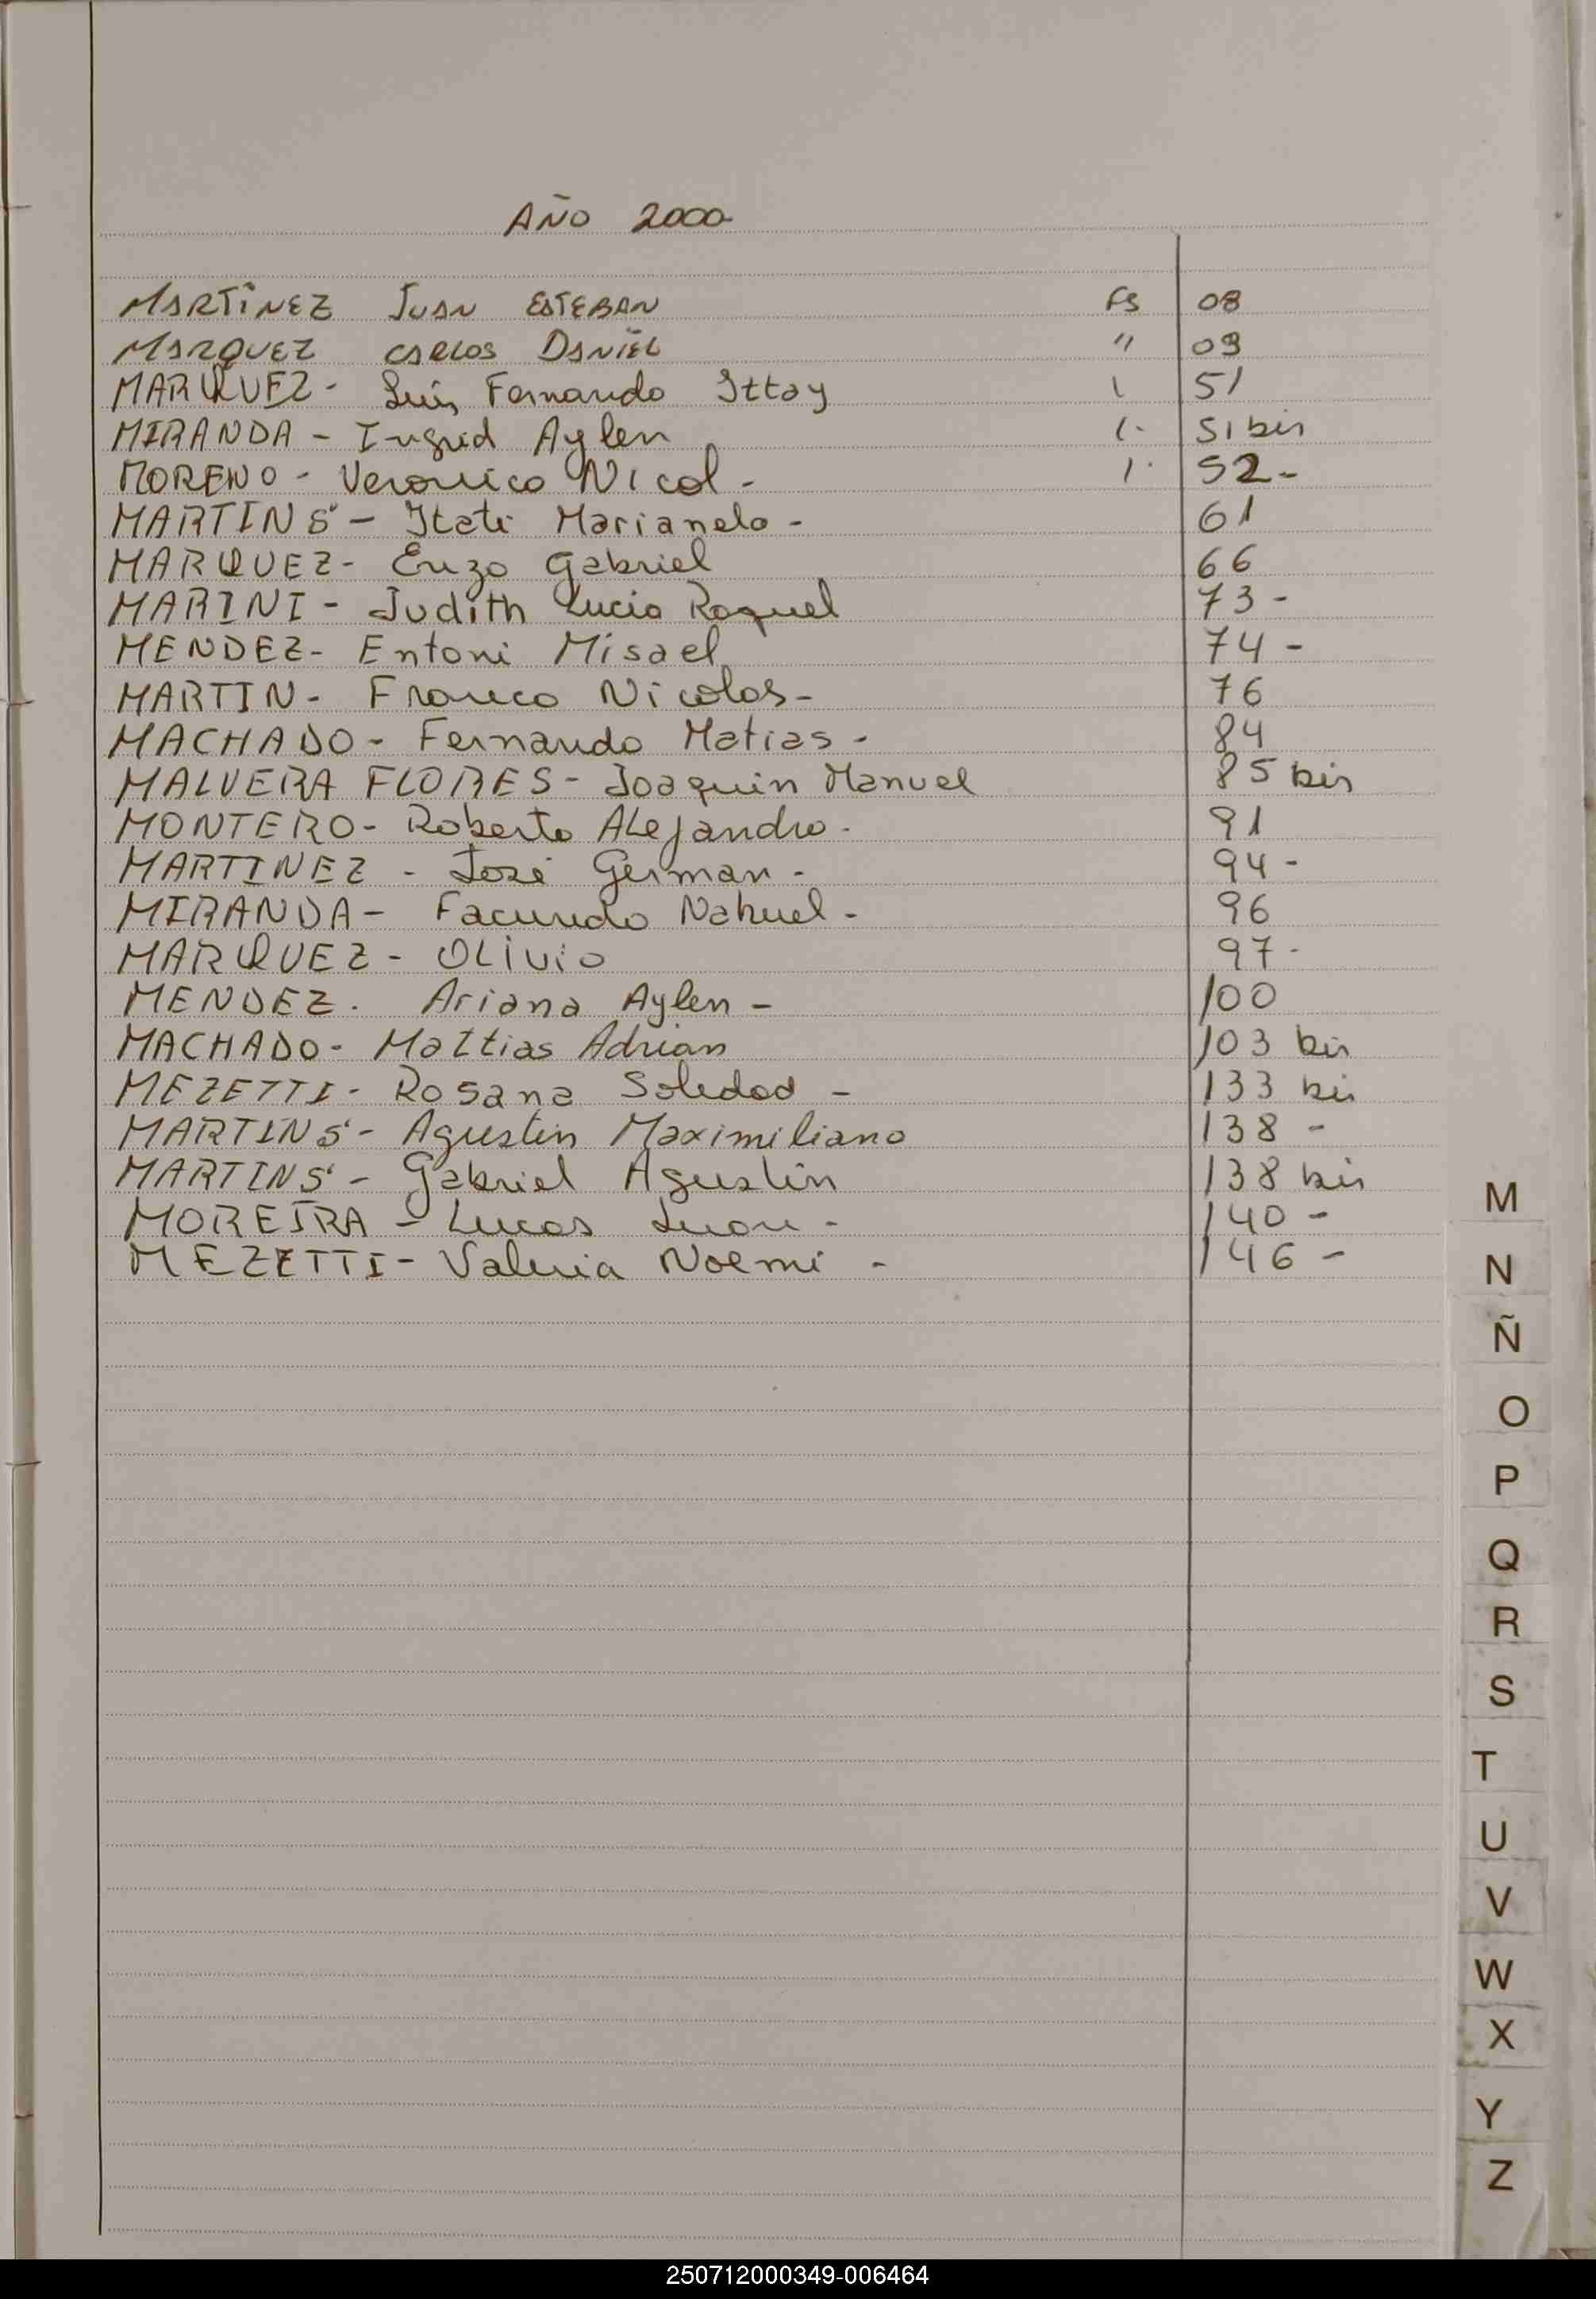 AÑO 2000
MARTÍNEZ JUAN ESTEBAN FS 08
MARQUEZ CARLOS DANIEL " 09
MARQUEZ - Luis Fernando Ittay 51
MIRANDA - Ingrid Aylen 51 bis
MORENO - Veronica Nicol - 52 -
MARTINS - Itati Marianela - 61
MARQUEZ - Enzo Gabriel 66
MARINI - Judith Lucia Raquel 73 -
MENDEZ - Entoni Misael 74 -
MARTIN - Franco Nicolas - 76
MACHADO - Fernando Matias - 84
MALVERA FLORES - Joaquin Manuel 85 bis
MONTERO - Roberto Alejandro - 91
MARTINEZ - José German - 94 -
MIRANDA - Facundo Nahuel - 96
MARQUEZ - Olivio 97 -
MENDEZ - Ariana Aylen - 100
MACHADO - Mattias Adrian 103 bis
MEZETTI - Rosana Soledad - 133 bis
MARTINS - Agustin Maximiliano 138 -
MARTINS - Gabriel Agustin 138 bis
MOREIRA - Lucas - 140 -
MEZETTI - Valeria Noemi - 146 -
M
N
Ñ
O
P
Q
R
S
T
U
V
W
X
Y
Z
250712000349-006464